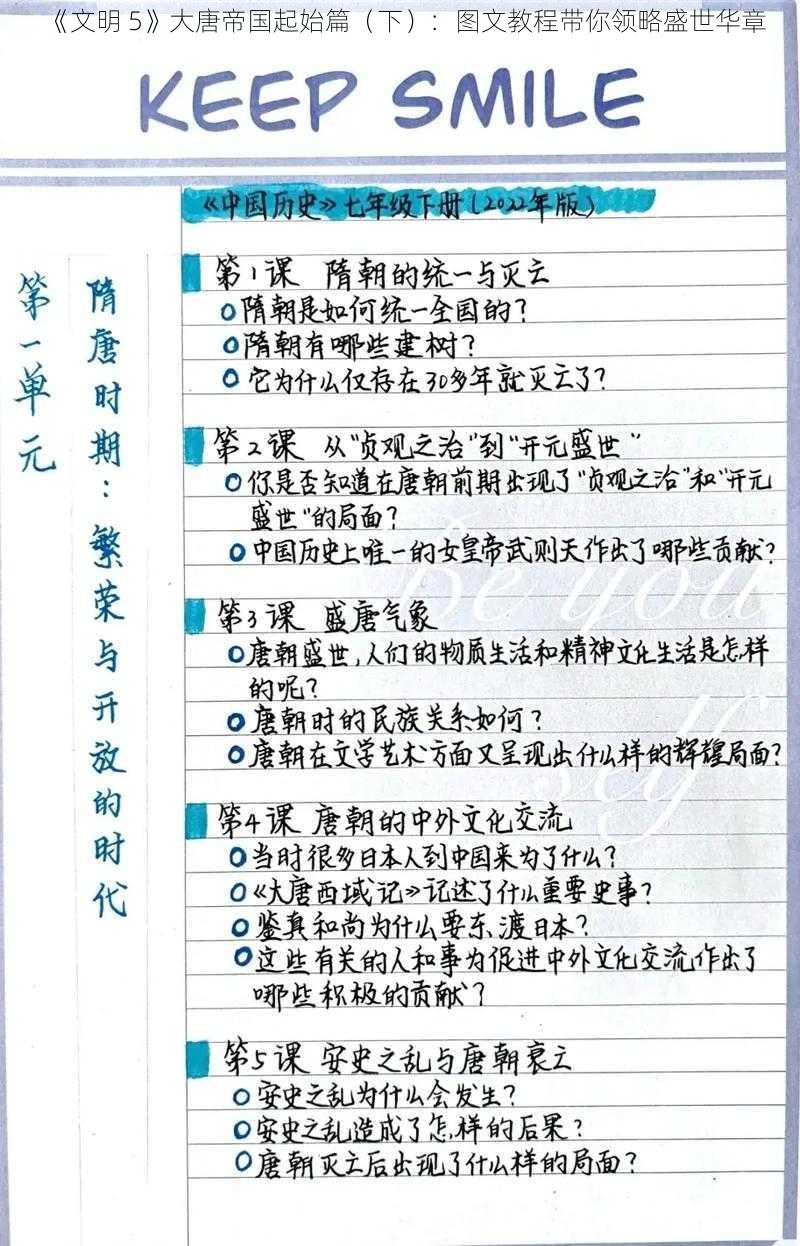 《文明 5》大唐帝国起始篇（下）：图文教程带你领略盛世华章
KEEP SMILE
《中国历史》七年级下册(2022年版)
第一单元
隋唐时期：繁荣与开放的时代
第1课 隋朝的统一与灭亡
隋朝是如何统一全国的？
隋朝有哪些建树？
它为什么仅存在30多年就灭亡了？
第2课 从"贞观之治"到"开元盛世"
你是否知道在唐朝前期出现了"贞观之治"和"开元
盛世"的局面？
中国历史上唯一的女皇帝武则天作出了哪些贡献？
第3课 盛唐气象
唐朝盛世,人们的物质生活和精神文化生活是怎样
的呢？
唐朝时的民族关系如何？
唐朝在文学艺术方面又呈现出什么样的辉煌局面？
第4课 唐朝的中外文化交流
当时很多日本人到中国来为了什么？
《大唐西域记》记述了什么重要史事？
鉴真和尚为什么要东渡日本？
这些有关的人和事为促进中外文化交流作出了
哪些积极的贡献？
第5课 安史之乱与唐朝衰亡
安史之乱为什么会发生？
安史之乱造成了怎样的后果？
唐朝灭亡后出现了什么样的局面？
be you
self